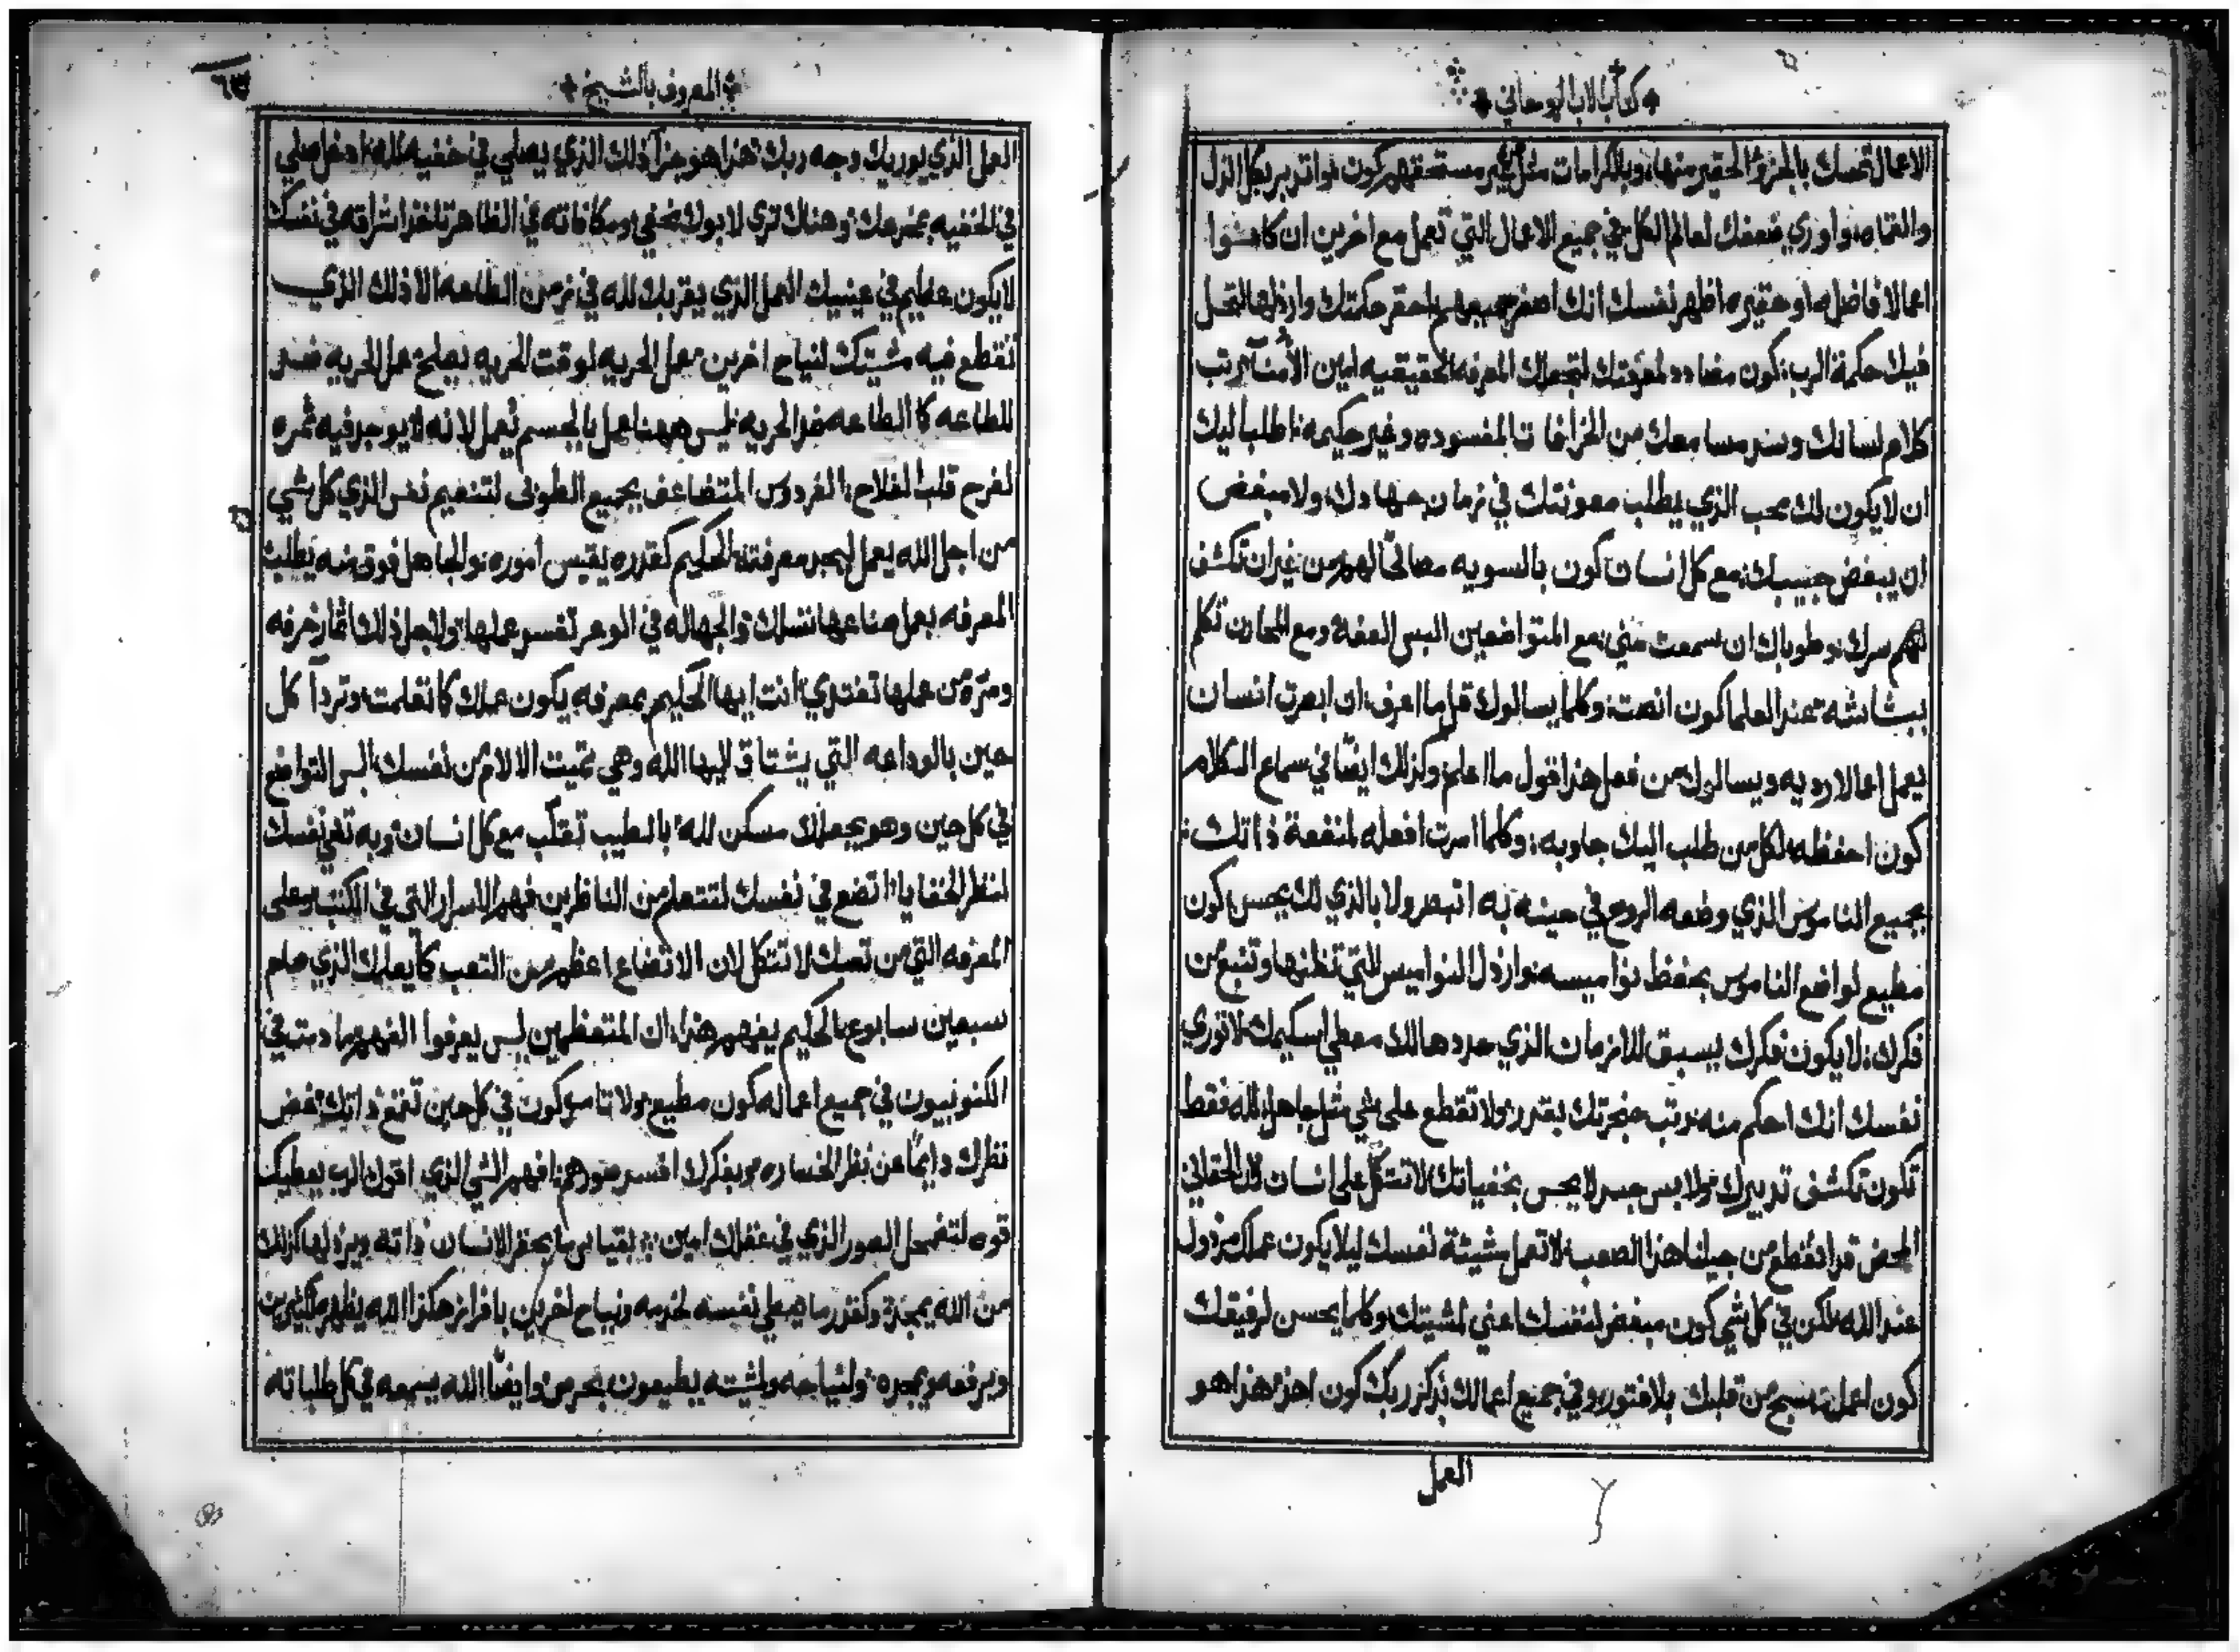 كتاب الاب الروحاني
الاعمال تحسك بالجزؤ الحقير منها وبالكرامات مثل غير مستحقهم كون نواتدبر بكل الذل
والقاه واوري ضعفك لعالم الكل في جميع الاعمال التي تعمل مع اخرين ان كانوا
اعمالا فاضله او حقيره اظهر نفسك انك اصغر جميعهم احقر حكمتك وارذلها لتحل
فيك حكمة الرب كون مضادد لمعرفتك لتجعلك المعرفه الحقيقيه امين الامنا رتب
كلام لسانك وسد مسامعك من الخرافات المفسوده وغير حكيمه اطلب اليك
ان لا يكون لك محب الذي يطلب معونتك في زمان جهادك ولا مبغض
ان يبغض حبيبك مع كل انسان كون بالسويه مصالحا لهم من غير ان تكشف
لهم سرك وطوباك ان سمعت مني مع المتواضعين البس العفه ومع المحارن تكلم
ببشاشه عند العلما كون انصت وكلما يسالوك قل ما اعرف ان ابصرت انسان
يعمل اعمالا رديه ويسالوك من فعل هذا قول ما اعلم وكذلك ايضا في سماع الكلام
كون احفظه لكل من طلب اليك جاوبه وكلما امرت افعله لمنفعة ذاتك
جميع الناموس الذي وضعه الروح في حينه به اتبصر ولا بالذي لك يحسن كون
مطيع لواضع الناموس بحفظ نواميسه وارذل النواميس التي تظنها وتنبع من
فكرك لا يكون فكرك يسبق للازمان الذي حددها لك معطي اسكيمك لا توري
نفسك انك احكم منه رتب حنجرتك بقدر ولا تقطع على شي مثل جاهل لله فقط
تكون تكشف تدبيرك ولابس جسد لا يحس بخفياتك لا تتكل على انسان لان الحقاني
المحض قد انقطع من جيلنا هذا الصعب لا تعمل مشيئة نفسك ليلا يكون عملك مرذول
عند الله لكن في كل شي كون مبغض لنفسك اعني لمشيتك وكلما يحسن لرفيقك
كون اعمل سبح من قلبك بلا فتور وفي جميع اعمالك بذكر ربك كون اهذ هذا هو
العمل
المعروف بالشيخ
٦٣
العمل الذي يوريك وجه ربك هذا هو جزا ذلك الذي يصلي في خفيه لله ادخل صلي
في الخفيه بمخدعك وهناك تري لابوك مخفي ومكافاته في الظاهر تاخذ اشراقه في نفسك
لا يكون عظيم في عينيك العمل الذي يقربك لله في زمن الطاعه الا ذلك الذي
تقطع فيه مشيتك لنياح اخرين عمل الحريه لوقت الحريه يصلح عمل الحريه ضد
للطاعه كما الطاعه ضد الحريه ليس ههنا عمل بالجسم تعمل لانه لا يوجد فيه ثمره
لفرح قلب الفلاح الفردوس المتضاعف بجميع الطوبى لتنعيم نفس الذي كل شي
من اجل الله يعمل ليجد معرفته الحكيم كقدره يقيس اموره والجاهل فوق منه يطلب
المعرفه بعمل صناعها تنسلك والجهاله في الوعر تفسر عملها ولاجل ذلك ثمار خرفه
ومره من عملها تغتدي انت ايها الحكيم بمعرفه يكون عملك كما تعلمت وتردا كل
حين بالوداعه التي يشتاق ليها الله وهي تميت الالام من نفسك البس التواضع
في كل حين وهو يجعلك مسكن لله بالطيب تقلب مع كل انسان وبه تغني نفسك
لنظر الخفايا اتضع في نفسك لتتعلم من الناظرين فهم الاسرار التي في الكتب وعلى
المعرفه التي من تعبك لا تتكل لان الاتضاع اعظم من التعب كما يعلمك الذي صام
سبعين سابوع الحكيم يفهم هذا ان المتعظمين ليس يعرفوا الفهم ما دمت في
الكنوبيون في جميع اعماله كون مطيع ولا ناموس كون في كل حين تنفع ذاتك غض
نظرك دايما عن نظر الخساره وبفكرك افسد صورهم افهم الشي الذي اقول الرب يعطيك
قوه لتضمحل الصور الذي في عقلك امين بقياس ما يحقر الانسان ذاته ويرذلها كذلك
من الله يمجد وكقدر ما يعطي نفسه لخدمه ونياح اخرين بافراز هكذا الله يظهر لكثيرين
ويرفعه ويمجده ولنياحه ولمشيته يطيعون بحرص وايضا الله يسمعه في كل طلباته